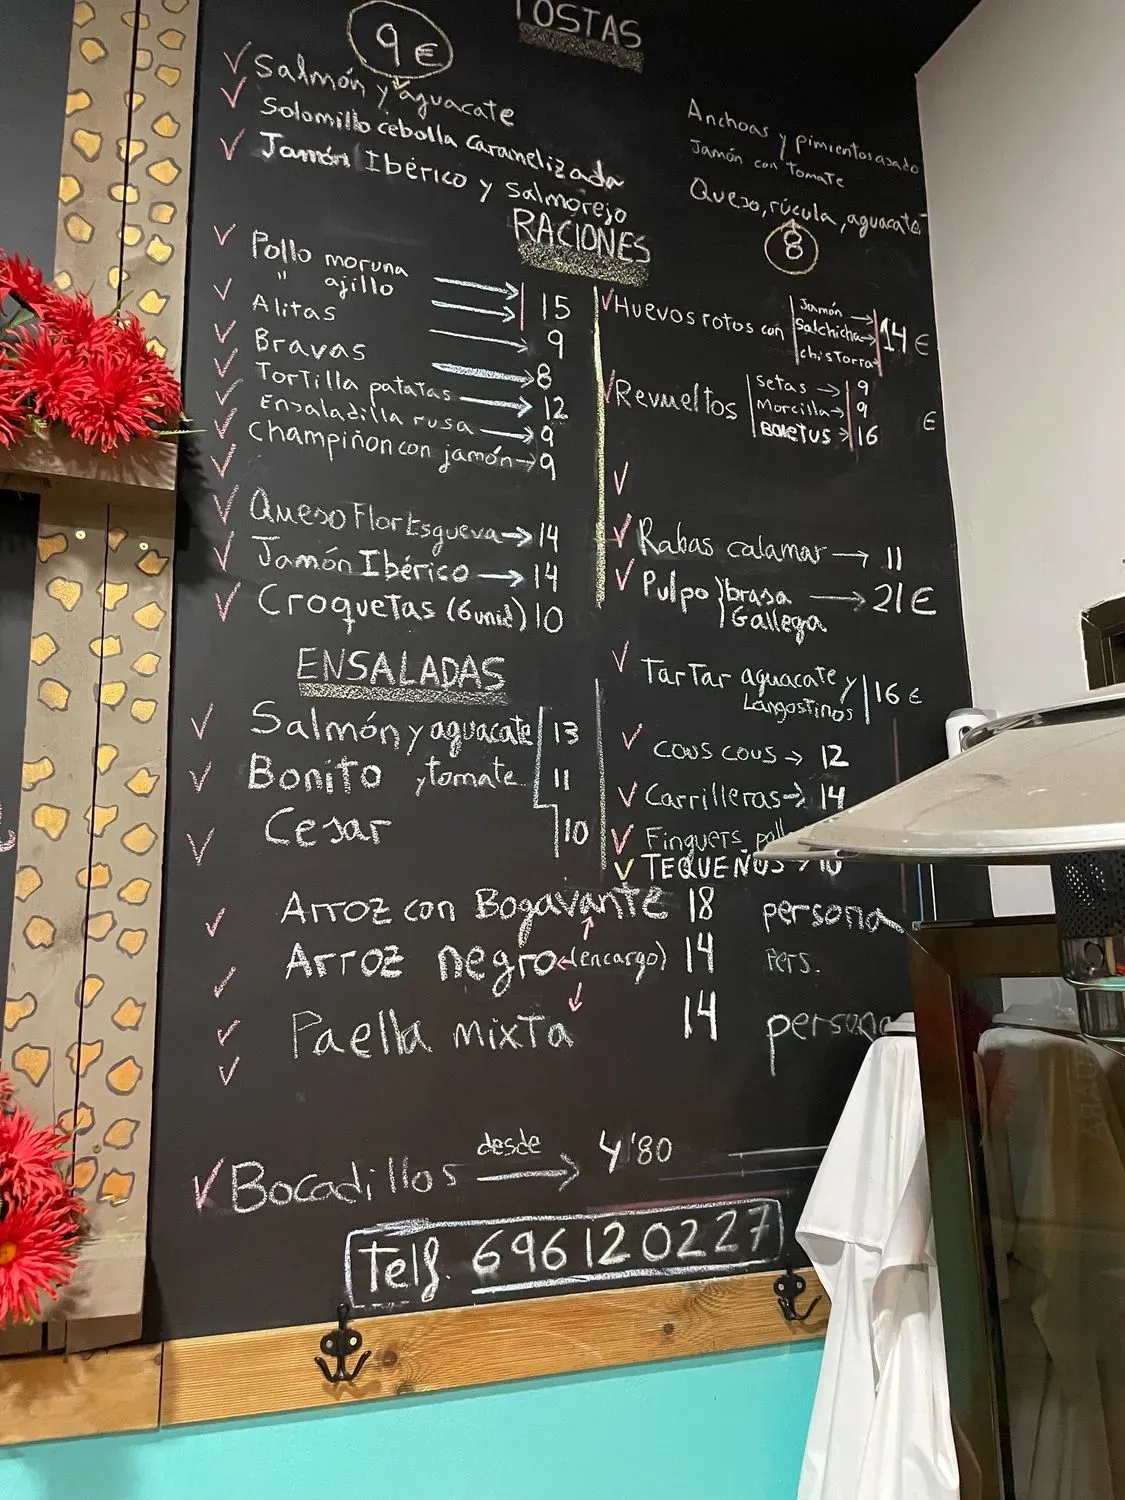 TOSTAS
9 €
Salmón y aguacate
Solomillo cebolla caramelizada
Jamón Ibérico y Salmorejo
Anchoas y pimientos asado
Jamón con tomate
Queso, rúcula, aguacate
8
RACIONES
Pollo moruna
" ajillo 15
Alitas 9
Bravas 8
Tortilla patatas 12
Ensaladilla rusa 9
Champiñon con jamón 9
Queso Flor Esgueva 14
Jamón Ibérico 14
Croquetas (6 unid) 10
Huevos rotos con Jamón
Salchicha 14 €
chistorra
Revueltos Setas 9
Morcilla 9 €
BOLETUS 16
Rabas calamar 11
Pulpo brasa 21 €
Gallega
Tartar aguacate y
Langostinos 16 €
cous cous 12
Carrilleras 14
Finguers
TEQUEÑOS 10
ENSALADAS
Salmón y aguacate 13
Bonito , tomate 11
Cesar 10
Arroz con Bogavante 18 persona
Arroz negro (encargo) 14 Pers.
Paella mixta 14 persona
Bocadillos desde 4'80
Telf. 696120227